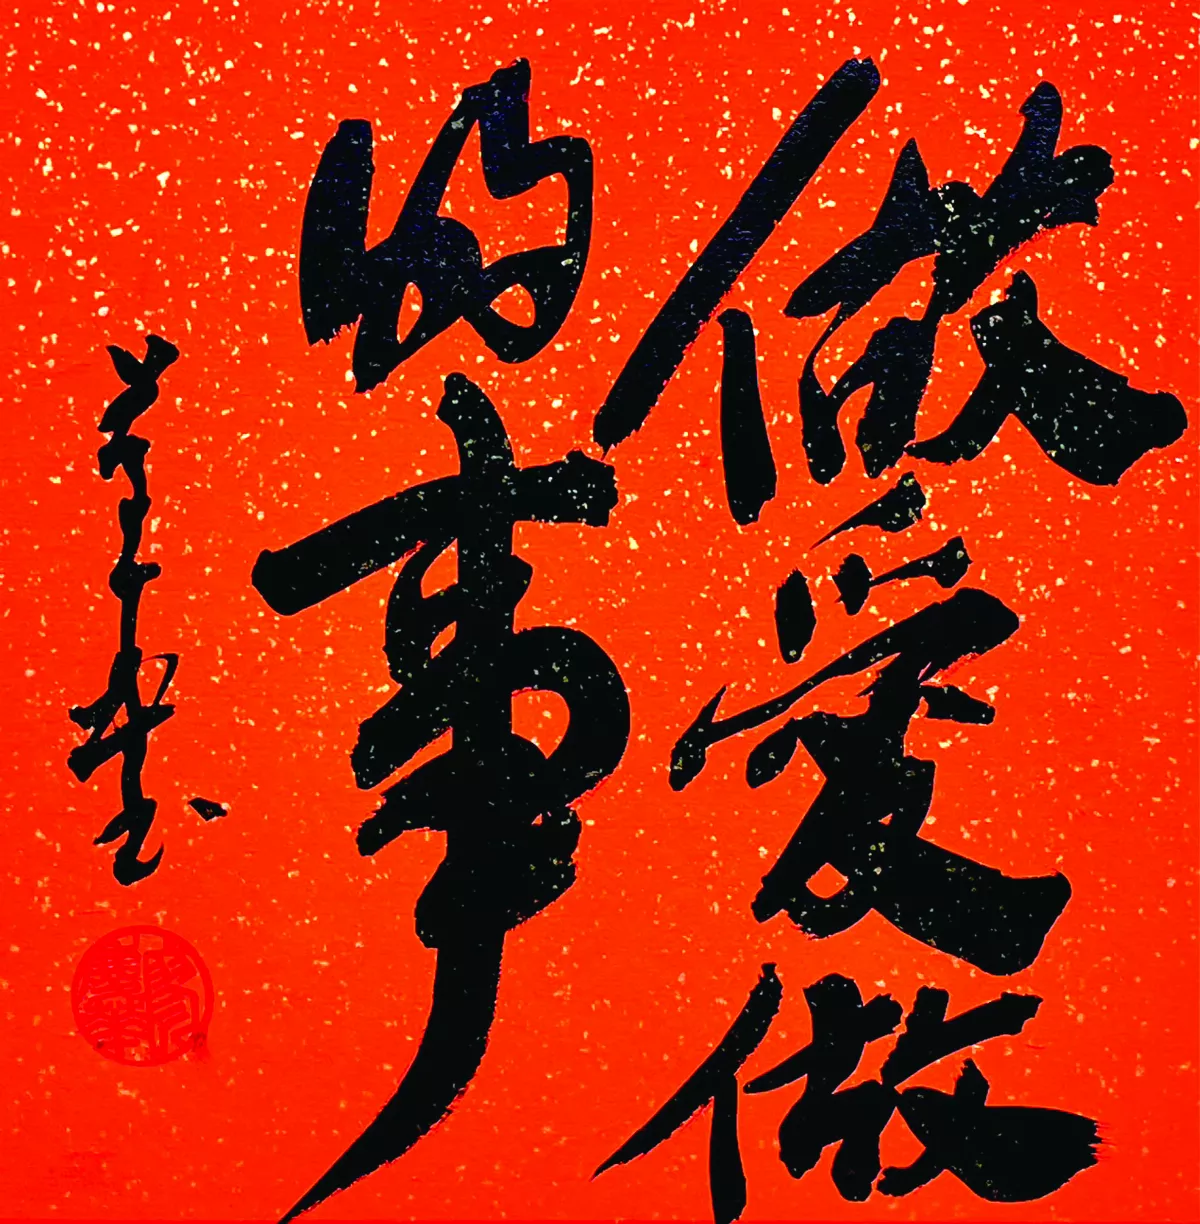 做爱做
的事